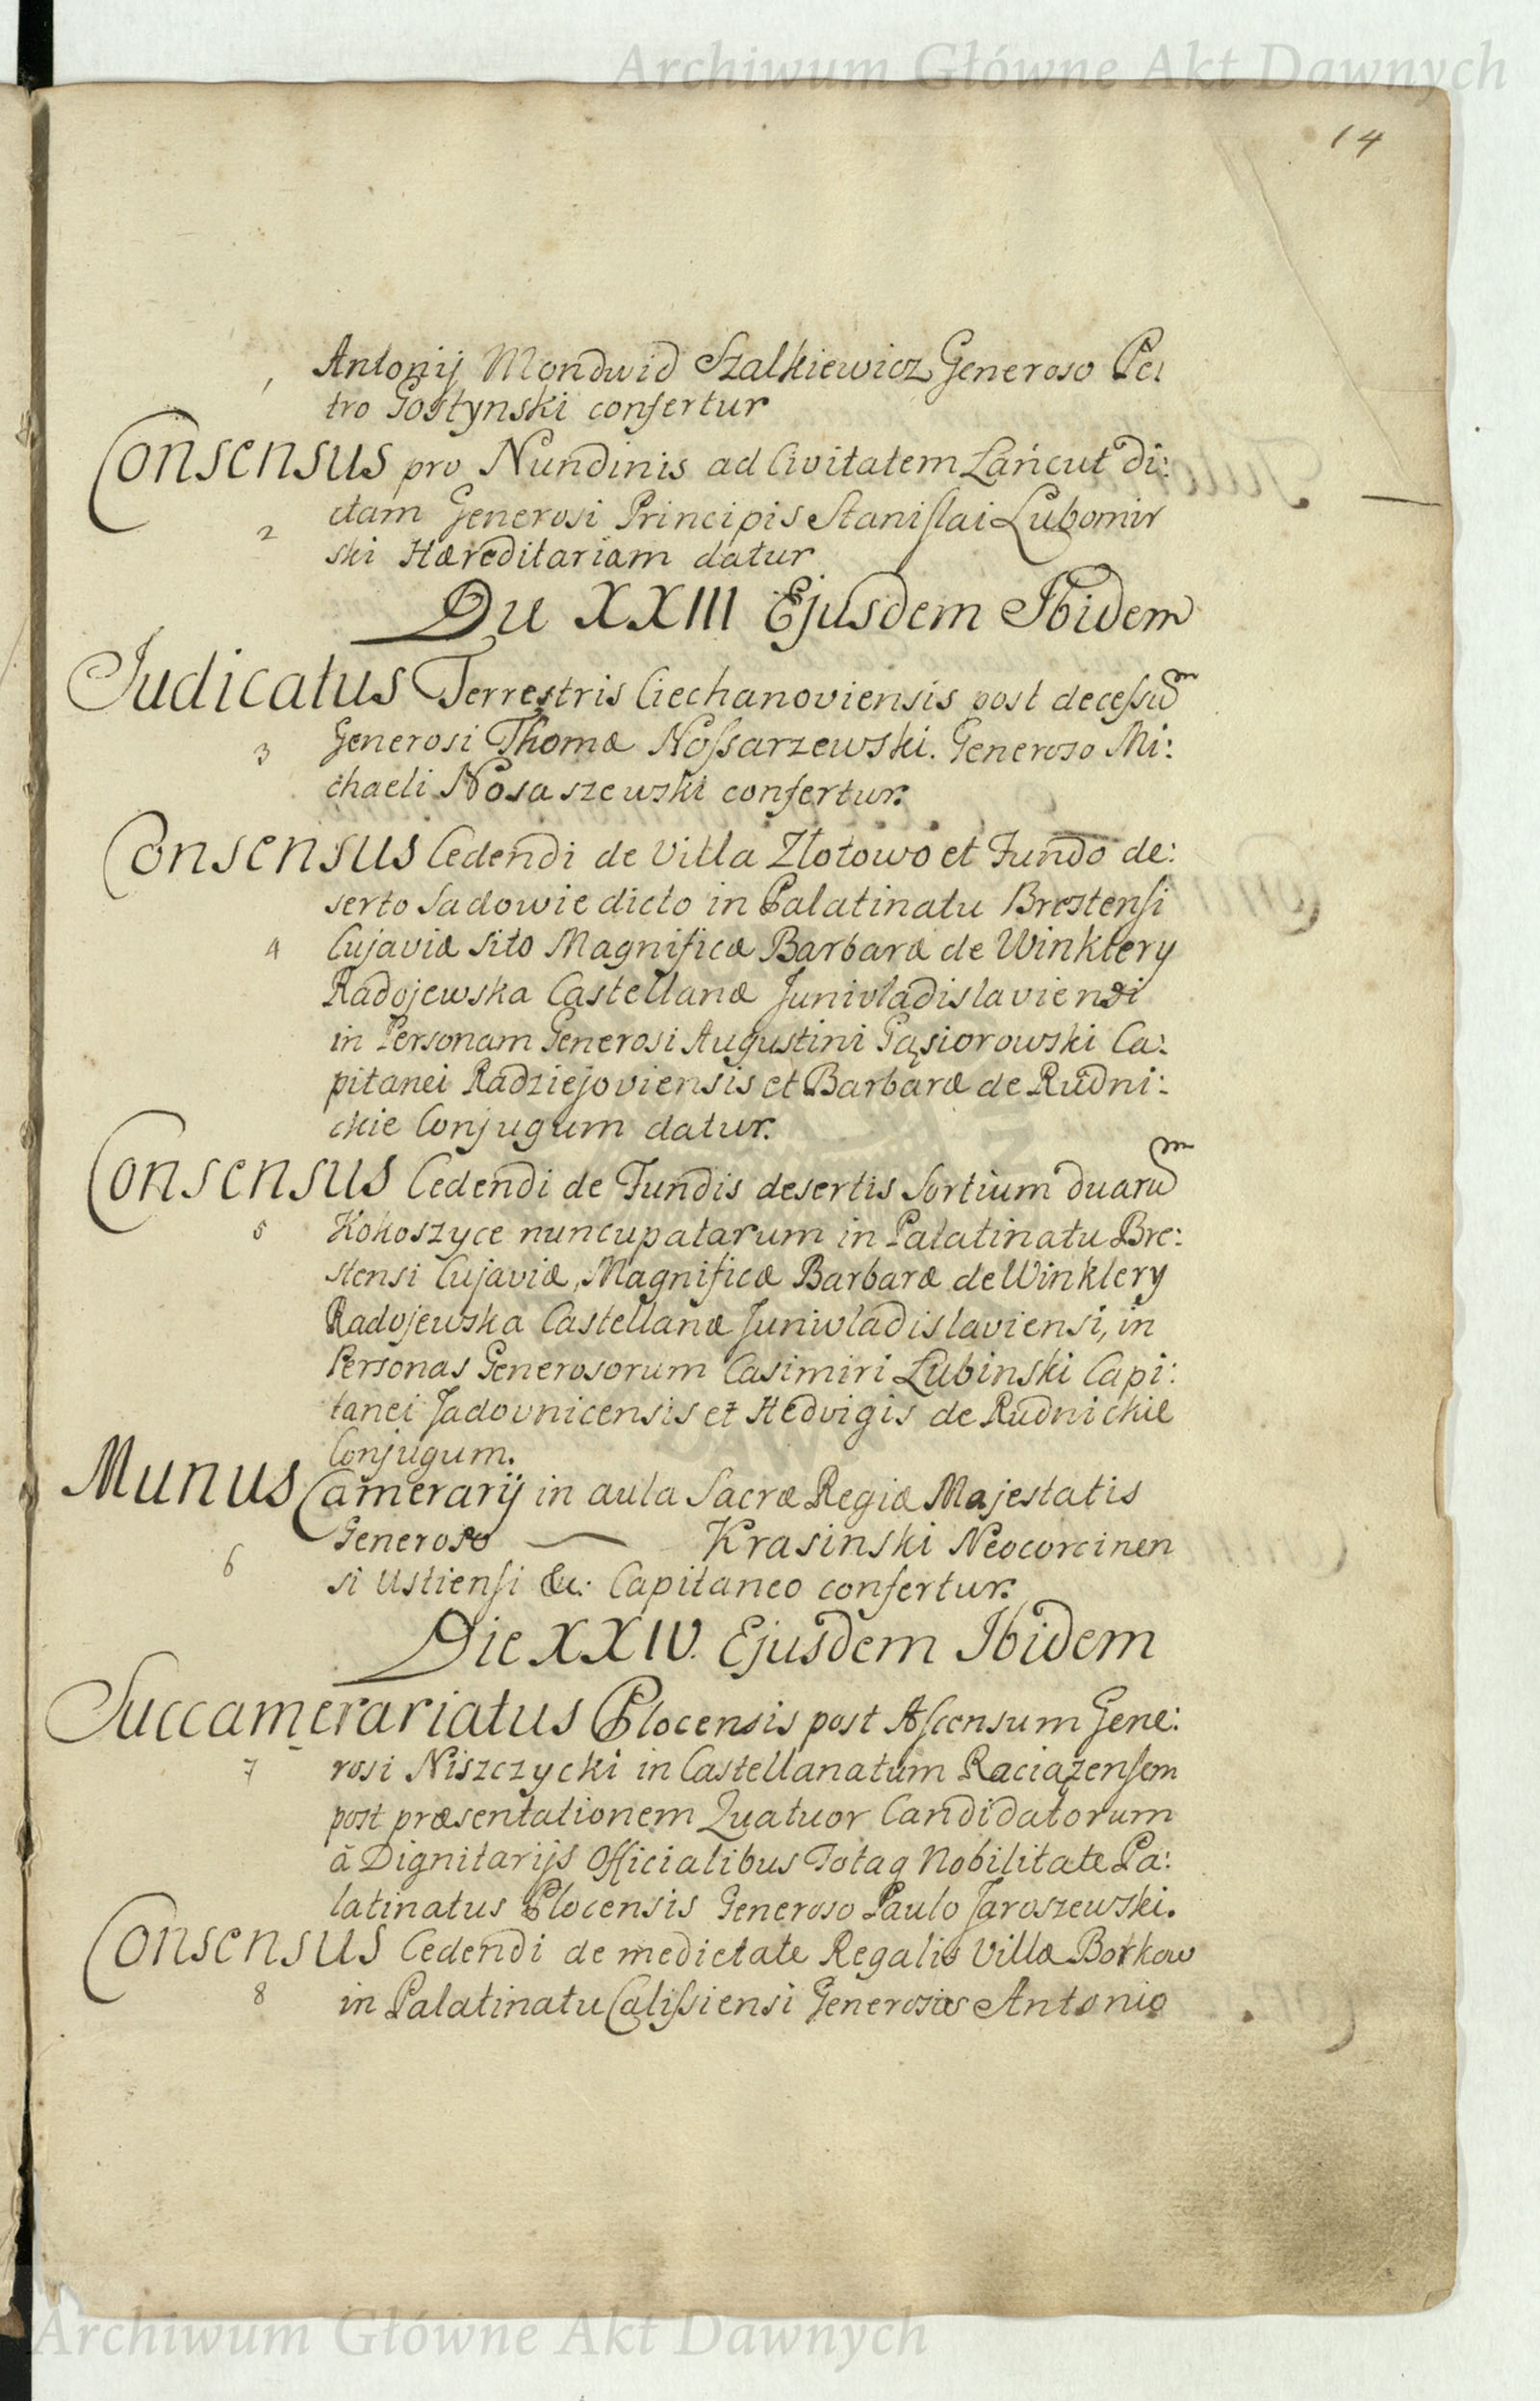 Archiwum Główne Akt Dawnych
14
1 Antonij Mondwid Szalkiewicz Generoso Pe:
tro Gostynski confertur
Consensus pro Nundinis ad Civitatem Łańcut di:
2 ctam Generosi Principis Stanislai Lubomir
ski Hæreditariam datur
Die XXIII Ejusdem Ibidem
Judicatus Terrestris Ciechanoviensis post decessum
3 Generosi Thomæ Nossarzewski. Generoso Mi:
chaeli Nosaszewski confertur.
Consensus Cedendi de Villa Złotowo et Fundo de:
serto Sadowie dicto in Palatinatu Brestensi
4 Cujaviæ sito Magnificæ Barbaræ de Winklery
Radojewska Castellanæ Junivladislaviensi
in Personam Generosi Augustini Gąsiorowski Ca:
pitanei Radziejoviensis et Barbaræ de Rudni:
ckie Conjugum datur.
Consensus Cedendi de Fundis desertis Sortium duarum
5 Kokoszyce nuncupatarum in Palatinatu Bre:
stensi Cujaviæ, Magnificæ Barbaræ de Winklery
Radojewska Castellanæ Juniwladislaviensi, in
Personas Generosorum Casimiri Lubinski Capi:
tanei Jadovnicensis et Hedvigis de Rudnickie
Conjugum.
Munus Camerarij in aula Sacræ Regiæ Majestatis
Generoso — Krasinski Neocorcinen
6 si Ustiensi &c: Capitaneo confertur.
Die XXIV. Ejusdem Ibidem
Succamerariatus Plocensis post Ascensum Gene:
7 rosi Niszczycki in Castellanatum Raciążensem
post præsentationem Quatuor Candidatorum
à Dignitarijs Officialibus Totaq Nobilitate Pa:
latinatus Plocensis Generoso Paulo Jaroszewski.
Consensus Cedendi de medietate Regalis Villæ Borkow
8 in Palatinatu Calissiensi Generosis Antonio
Archiwum Główne Akt Dawnych